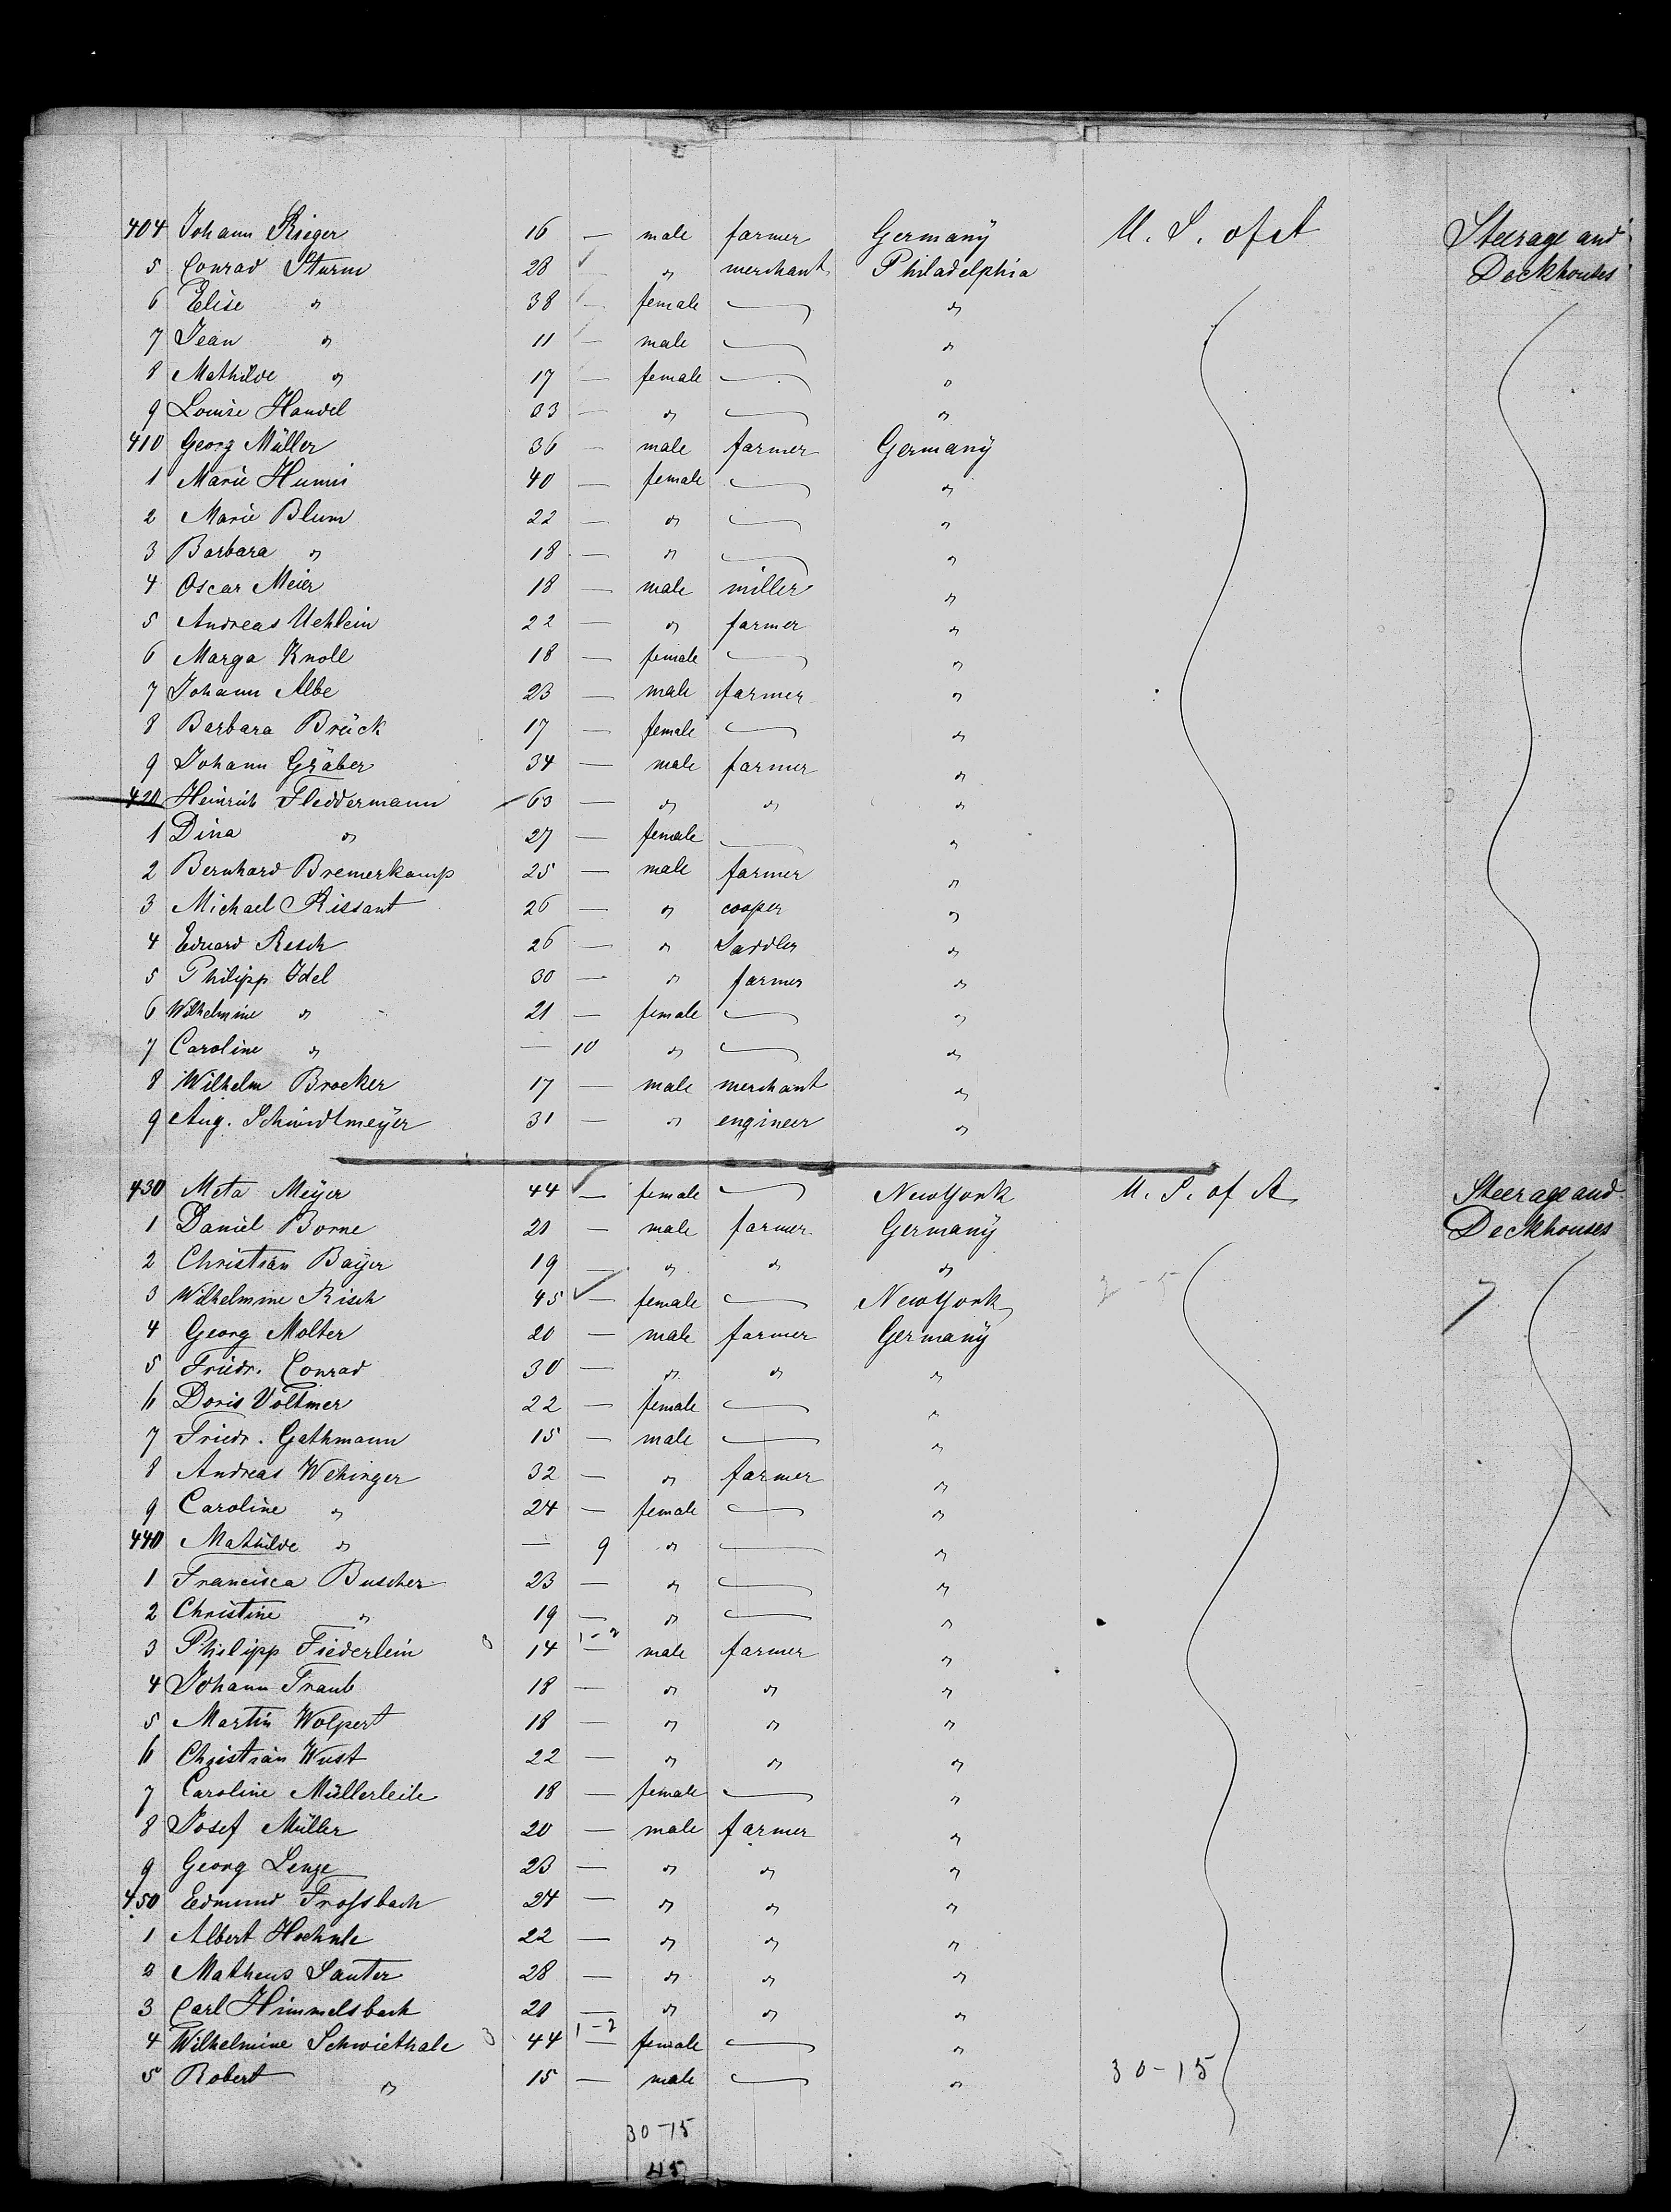 404 Johann Rieger 16 — male farmer Germany U. S. of A Steerage and
5 Conrad Sturm 28 — " merchant Philadelphia Deckhouses
6 Elise " 38 — female — "
7 Jean " 11 — male — "
8 Mathilde " 17 — female — "
9 Louise Handel 33 — " — "
410 Georg Müller 36 — male farmer Germany
1 Marie 40 — female — "
2 Marie Blum 22 — " — "
3 Barbara " 18 — " — "
4 Oscar Meier 18 — male miller "
5 Andreas Uehlein 22 — " farmer "
6 Marga Knoll 18 — female — "
7 Johann Albe 23 — male farmer "
8 Barbara Brück 17 — female — "
9 Johann Gräber 34 — male farmer "
420 Heinrich Fleddermann 63 — " " "
1 Dina " 27 — female — "
2 Bernhard Bremerkamp 25 — male farmer "
3 Michael Rissant 26 — " cooper "
4 Eduard Resch 26 — " Saddler "
5 Philipp Idel 30 — " farmer "
6 Wilhelmine " 21 — female — "
7 Caroline " — 10 " — "
8 Wilhelm Brocker 17 — male merchant "
9 Aug. Schmidtmeÿer 31 — " engineer "
430 Meta Meÿer 44 — female — New York U. S. of A Steerage and
1 Daniel Borne 21 — male farmer Germany Deckhouses
2 Christian Baÿer 19 — " " "
3 Wilhelmine Risch 45 — female — New York
4 Georg Molter 20 — male farmer Germany
5 Friedr. Conrad 30 — " " "
6 Doris Voltmer 22 — female — "
7 Friedr. Gathmann 15 — male — "
8 Andreas Wehinger 32 — " farmer "
9 Caroline " 24 — female — "
440 Mathilde " — 9 " — "
1 Francisca Buscher 23 — " — "
2 Christine " 19 — " — "
3 Philipp Fiederlein 14 — male farmer "
4 Johann Traub 18 — " " "
5 Martin Wolpert 18 — " " "
6 Christian Wust 22 — " " "
7 Caroline Müllerleile 18 — female — "
8 Josef Müller 20 — male farmer "
9 Georg Lenze 23 — " " "
450 Edmund Frossbach 24 — " " "
1 Albert 22 — " " "
2 Matheus Sauter 28 — " " "
3 Carl Himmelsbach 21 — " " "
4 Wilhelmine Schwiethale 44 — female — "
5 Robert " 15 — male — " 30-15
30-15
45